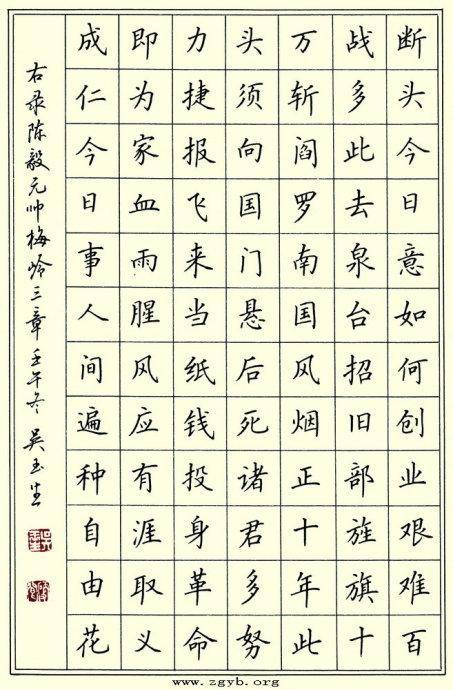 断头今日意如何创业艰难百
战多此去泉台招旧部旌旗十
万斩阎罗南国风烟正十年此
头须向国门悬后死诸君多努
力捷报飞来当纸钱投身革命
即为家血雨腥风应有涯取义
成仁今日事人间遍种自由花
右录陈毅元帅梅岭三章壬午冬吴玉生
www.zgyb.org